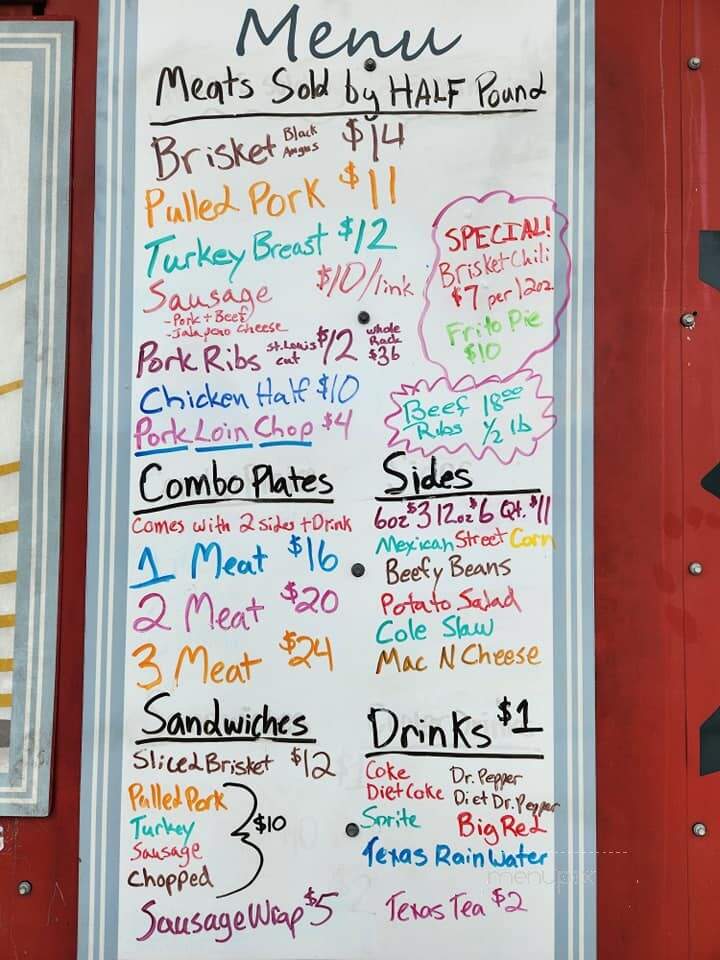 Menu
Meats Sold by HALF Pound
Brisket Black Angus $14
Pulled Pork $11
Turkey Breast $12
Sausage $10/link
-Pork + Beef
-Jalapeno Cheese
Pork Ribs St. Louis cut $12 whole Rack $36
Chicken Half $10
Pork Loin Chop $4
SPECIAL!
Brisket Chili
$7 per 12oz
Frito Pie
$10
Beef Ribs 18.00 1/2 lb
Combo Plates
Comes with 2 sides + Drink
1 Meat $16
2 Meat $20
3 Meat $24
Sides
6oz $3 12oz $6 Qt. $11
Mexican Street Corn
Beefy Beans
Potato Salad
Cole Slaw
Mac N Cheese
Sandwiches
Sliced Brisket $12
Pulled Pork
Turkey
Sausage
Chopped
$10
Sausage Wrap $5
Drinks $1
Coke
Diet Coke
Dr. Pepper
Diet Dr. Pepper
Sprite
Big Red
Texas Rain Water
Texas Tea $2